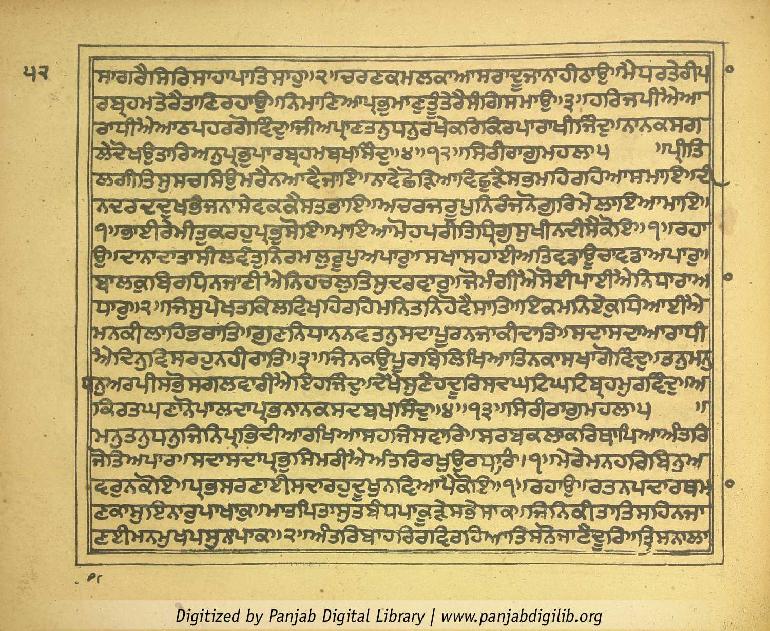 ੫੨
ਸਾਗਰੈਸਿਰਿਸਾਹਾਪਾਤਿਸਾਹੁ॥੨॥ਚਰਣਕਮਲਕਾਆਸਰਾਦੂਜਾਨਾਹੀਠਾਉ॥ਮੈਧਰਤੇਰੀਪ
ਰਬ੍ਰਹਮਤੇਰੈਤਾਣਿਰਹਾਉ॥ਨਿਮਾਣਿਆਪ੍ਰਭੁਮਾਣੁਤੂੰਤੇਰੈਸੰਗਿਸਮਾਉ॥੩॥ਹਰਿਜਪੀਐਆ
ਰਾਧੀਐਆਠਪਹਰਗੋਵਿੰਦੁ॥ਜੀਅਪ੍ਰਾਣਤਨੁਧਨੁਰਖੇਕਰਿਕਿਰਪਾਰਾਖੀਜਿੰਦੁ॥ਨਾਨਕਸਗ
ਲੇਦੋਖਉਤਾਰਿਅਨੁਪ੍ਰਭੁਪਾਰਬ੍ਰਹਮਬਖਸਿੰਦੁ॥੪॥੧੨॥ਸਿਰੀਰਾਗੁਮਹਲਾ੫ ॥ਪ੍ਰੀਤਿ
ਲਗੀਤਿਸੁਸਚਸਿਉਮਰੈਨਆਵੈਜਾਇ॥ਨਵੇਛੋੜਿਆਵਿਛੁੜੈਸਭਮਹਿਰਹਿਆਸਮਾਇ॥ਦੀ
ਨਦਰਦਦੁਖਭੰਜਨਾਸੇਵਕਕੈਸਤਭਾਇ॥ਅਚਰਜਰੂਪੁਨਿਰੰਜਨੋਗੁਰਿਮੇਲਾਇਆਮਾਇ॥
੧॥ਭਾਈਰੇਮੀਤੁਕਰਹੁਪ੍ਰਭੁਸੋਇ॥ਮਾਇਆਮੋਹਪਰੀਤਿਧ੍ਰਿਗੁਸੁਖੀਨਦੀਸੈਕੋਇ॥੧॥ਰਹਾ
ਉ॥ਦਾਨਾਦਾਤਾਸੀਲਵੰਤੁਨਿਰਮਲੁਰੂਪੁਅਪਾਰੁ॥ਸਖਾਸਹਾਈਅਤਿਵਡਾਊਚਾਵਡਾਅਪਾਰੁ॥
ਬਾਲਕੁਬਿਰਧਿਨਜਾਣੀਐਨਿਹਚਲੁਤਿਸੁਦਰਵਾਰੁ॥ਜੋਮੰਗੀਐਸੋਈਪਾਈਐਨਿਧਾਰਾਅ
ਧਾਰੁ॥੨॥ਜਿਸੁਪੇਖਤਕਿਲਵਿਖਹਿਰਹਿਮਨਿਤਨਿਹੋਵੈਸਾਂਤਿ॥ਇਕਮਨਿਏਕੁਧਿਆਈਐ
ਮਨਕੀਲਾਹਿਭਰਾਂਤਿ॥ਗੁਣਨਿਧਾਨਨਵਤਨੁਸਦਾਪੂਰਨਜਾਕੀਦਾਤਿ॥ਸਦਾਸਦਾਆਰਾਧੀ
ਐਦਿਨੁਵਿਸਰਹੁਨਹੀਰਾਤਿ॥੩॥ਜਿਨਕਉਪੂਰਬਿਲਿਖਿਆਤਿਨਕਾਸਖਾਗੋਵਿੰਦੁ॥ਤਨੁਮਨੁ
ਧਨੁਅਰਪੀਸਭੋਸਗਲਵਾਰੀਐਇਹਜਿੰਦੁ॥ਵੇਖੈਸੁਣੈਹਦੂਰਿਸਦਘਟਿਘਟਿਬ੍ਰਹਮੁਰਵਿੰਦੁ॥ਅ
ਕਿਰਤਘਣਾਨੋਪਾਲਦਾਪ੍ਰਭਨਾਨਕਸਦਬਖਸਿੰਦੁ॥੪॥੧੩॥ਸਿਰੀਰਾਗੁਮਹਲਾ੫ ॥
ਮਨੁਤਨੁਧਨੁਜਿਨਿਪ੍ਰਭਿਦੀਆਰਖਿਆਸਹਜਿਸਵਾਰਿ॥ਸਰਬਕਲਾਕਰਿਥਾਪਿਆਅੰਤਰਿ
ਜੋਤਿਅਪਾਰ॥ਸਦਾਸਦਾਪ੍ਰਭੁਸਿਮਰੀਐਅੰਤਰਿਰਖੁਉਰਧਾਰਿ॥੧॥ਮੇਰੇਮਨਹਰਿਬਿਨੁਅ
ਵਰੁਨਕੋਇ॥ਪ੍ਰਭਸਰਣਾਈਸਦਾਰਹੁਦੂਖੁਨਵਿਆਪੈਕੋਇ॥੧॥ਰਹਾਉ॥ਰਤਨਪਦਾਰਥਮਾ
ਣਕਾਸੁਇਨਾਰੁਪਾਖਾਕੁ॥ਮਾਤਪਿਤਾਸੁਤਬੰਧਪਾਕੂੜੇਸਭੇਸਾਕ॥ਜਿਨਿਕੀਤਾਤਿਸਹਿਨਜਾ
ਣਈਮਨਮੁਖਪਸੁਨਪਾਕ॥੨॥ਅੰਤਰਿਬਾਹਰਿਰਵਿਰਹਿਆਤਿਸਨੋਜਾਣੈਦੂਰਿ॥ਤ੍ਰਿਸਨਾਲਾ
Digitized by Panjab Digital Library | www.panjabdigilib.org